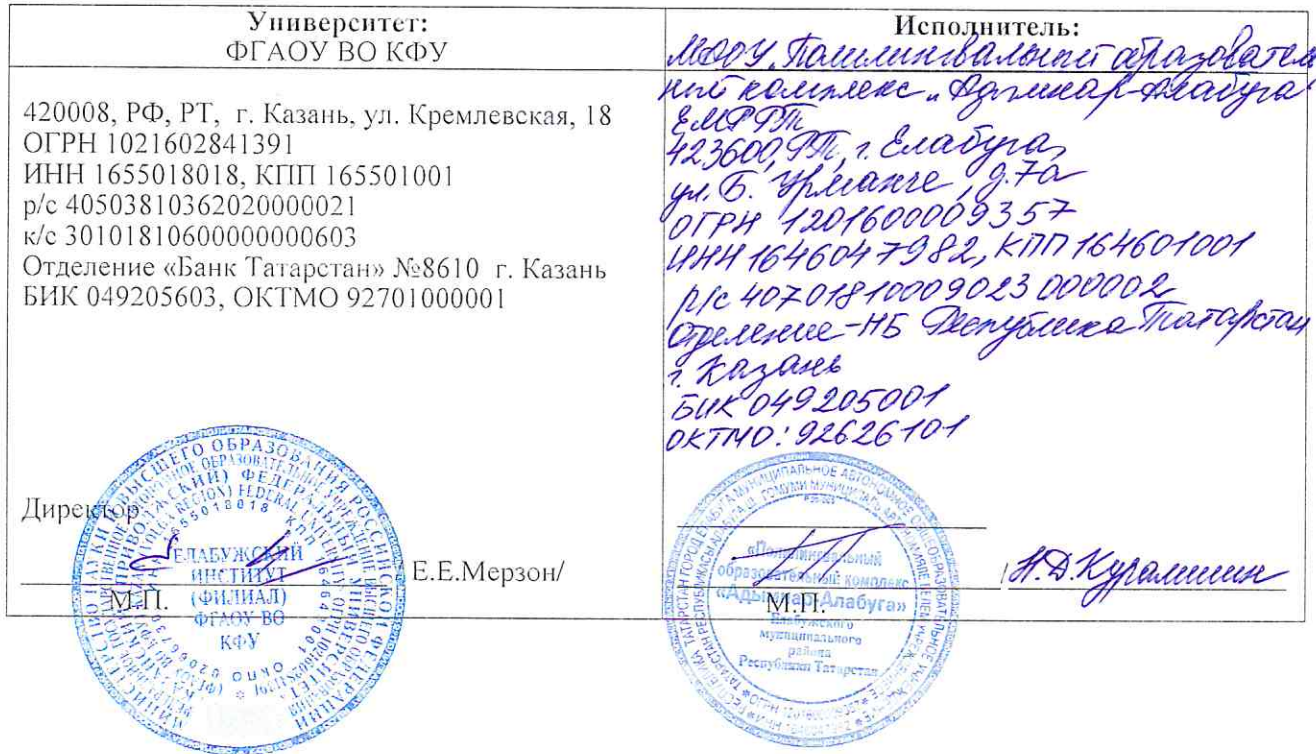 Университет:
ФГАОУ ВО КФУ
420008, РФ, РТ, г. Казань, ул. Кремлевская, 18
ОГРН 1021602841391
ИНН 1655018018, КПП 165501001
р/с 40503810362020000021
к/с 30101810600000000603
Отделение «Банк Татарстан» №8610 г. Казань
БИК 049205603, ОКТМО 92701000001
Директор
Е.Е.Мерзон/
М.П.
ЕЛАБУЖСКИЙ
ИНСТИТУТ
(ФИЛИАЛ)
ФГАОУ ВО
КФУ
Исполнитель:
МАОУ „Полилингвальный образователь
ный комплекс „Адымнар-Алабуга"
ЕМР РТ
423600, РТ, г. Елабуга,
ул. Б. Урманче, д.7а
ОГРН 1201600009357
ИНН 1646047982, КПП 164601001
р/с 40701810009023000002
Отделение-НБ Республика Татарстан
г. Казань
БИК 049205001
ОКТМО: 92626101
/Н.Д.Курамшин
М.П.
«Полилингвальный
образовательный комплекс
«Адымнар-Алабуга»
Елабужского
муниципального
района
Республики Татарстан